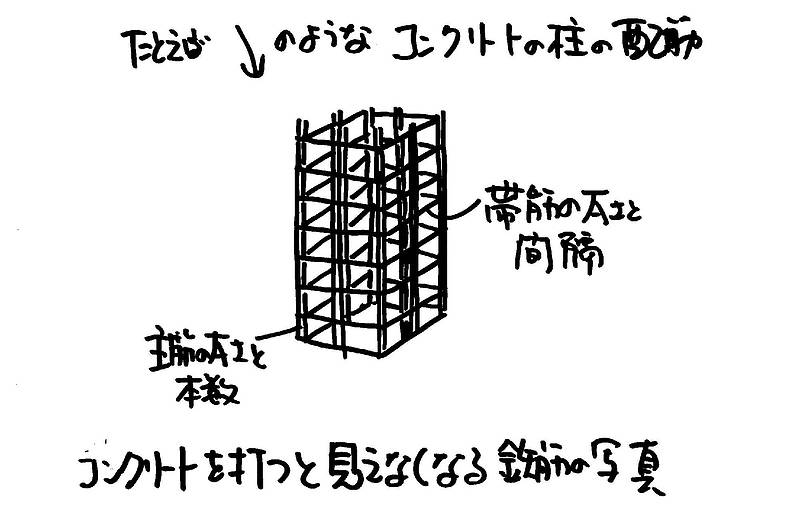 たとえば ↓のような コンクリートの柱の配筋
帯筋の太さと
間隔
主筋の太さと
本数
コンクリートを打つと見えなくなる 鉄筋の写真